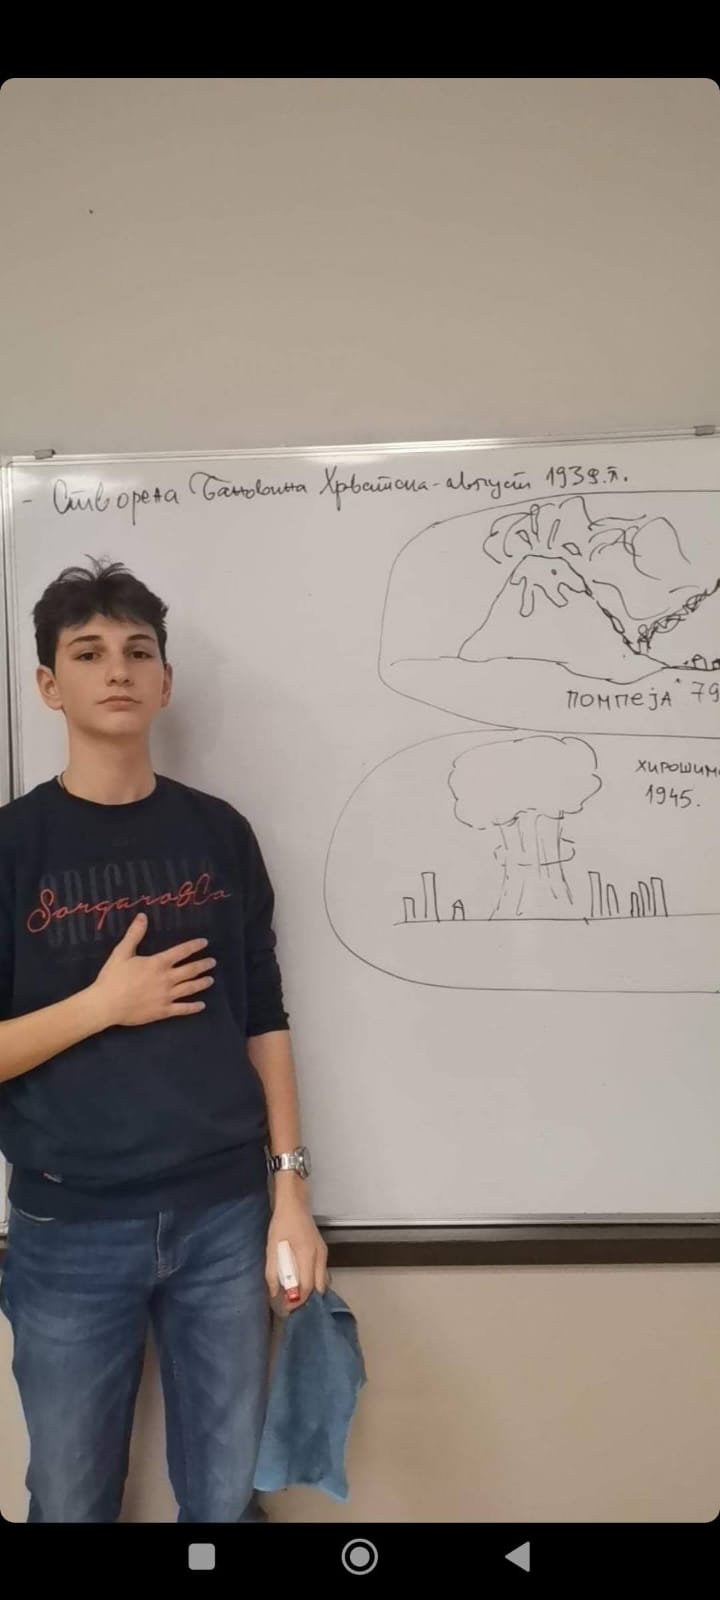 - Створена Бановина Хрватска - август 1939. г.
ПОМПЕЈА 79
ХИРОШИМ
1945.
ORIGINALS